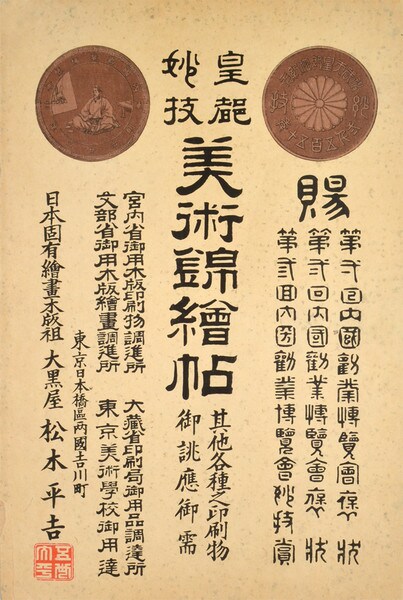 賜
第弍回内國勸業博覽會褒状
第弍回内國勸業博覽會褒状
第弎回内國勸業博覽會妙技賞
皇都
妙技
美術錦繪帖
其他各種之印刷物
御誂應御需
宮内省御用木版印刷物調進所 大藏省印刷局御用品調達所
文部省御用木版繪畫調進所 東京美術學校御用達
東京日本橋區两國吉川町
日本固有繪畫木版祖 大黒屋 松木平吉